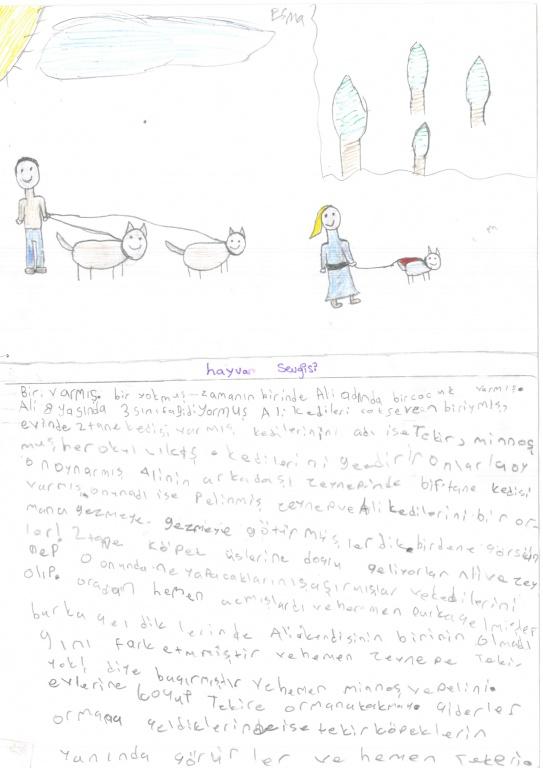 Esma
hayvan Sevgisi
Bir varmış bir yokmuş zamanın birinde Ali adında bir cocuk varmış.
Ali 8 yaşında 3 sınıfa gidiyormuş Ali kedileri cokseven biriymiş,
evinde 2 tane kedisi varmış kedilerinin adı ise Tekir, minnoş
muş her okul kedilerini gezdirir onlarla oy
onoynarmış Alinin arkadaşı zeynepinde bir tane kedisi
varmış onunadı ise Pelinmiş zeynepve Ali kedilerini bir or-
mana gezmeye. gezmeye götirmüşlerdiki birdene görsün
ler! 2 tane köpek üslerine doğru geliyorlar Ali ve zey
nep o onunda ne yapacaklarını şaşırmışlar vekedilerini
olıp. oradan hemen acmışlardı vehemen parka gelmişler
burka gel dik lerinde Ali kendisinin birinin olmadı
ğını fark etmmiştir vehemen zeynepe Tekir
yok! diye bagırmışdır vehemen minnoş vepelini.
evlerine koyup Tekire ormana bakmaya giderler
ormana geldiklerinde ise tekir köpeklerin
yanında görür ler ve hemen Tekirin